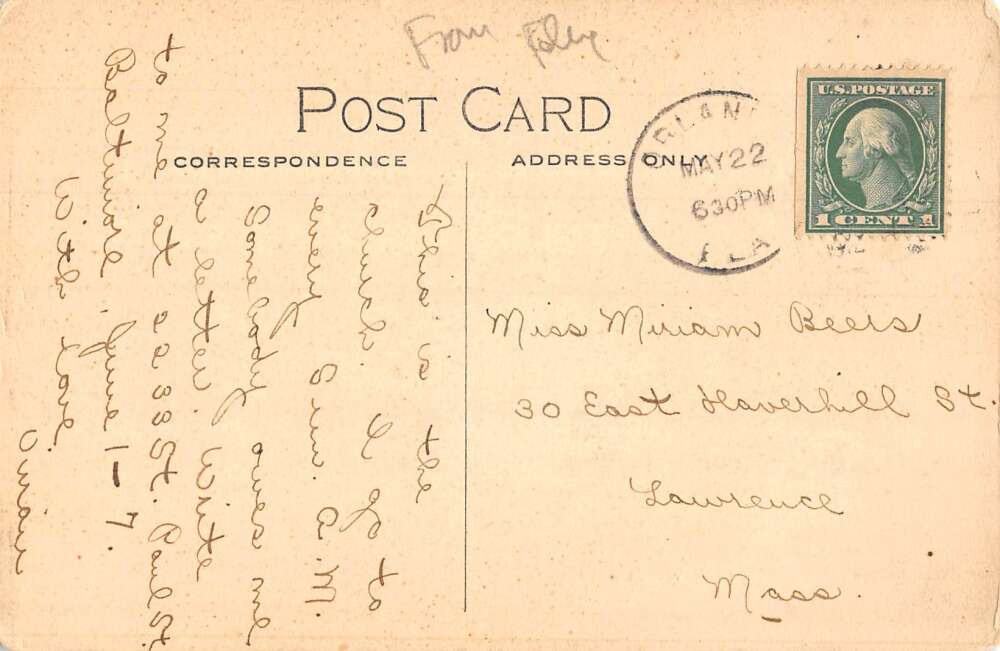 From
POST CARD
CORRESPONDENCE
ADDRESS ONLY
ORLAN
MAY 22
630PM
FLA
U.S. POSTAGE
1 CENT 1
This is the
church I go to
every Sun. A.M.
Somebody owes me
a letter. Write
to me at 2233 St. Paul St.
Baltimore June 1-7.
With love
Miss Miriam Beers
30 East Haverhill St.
Lawrence
Mass.